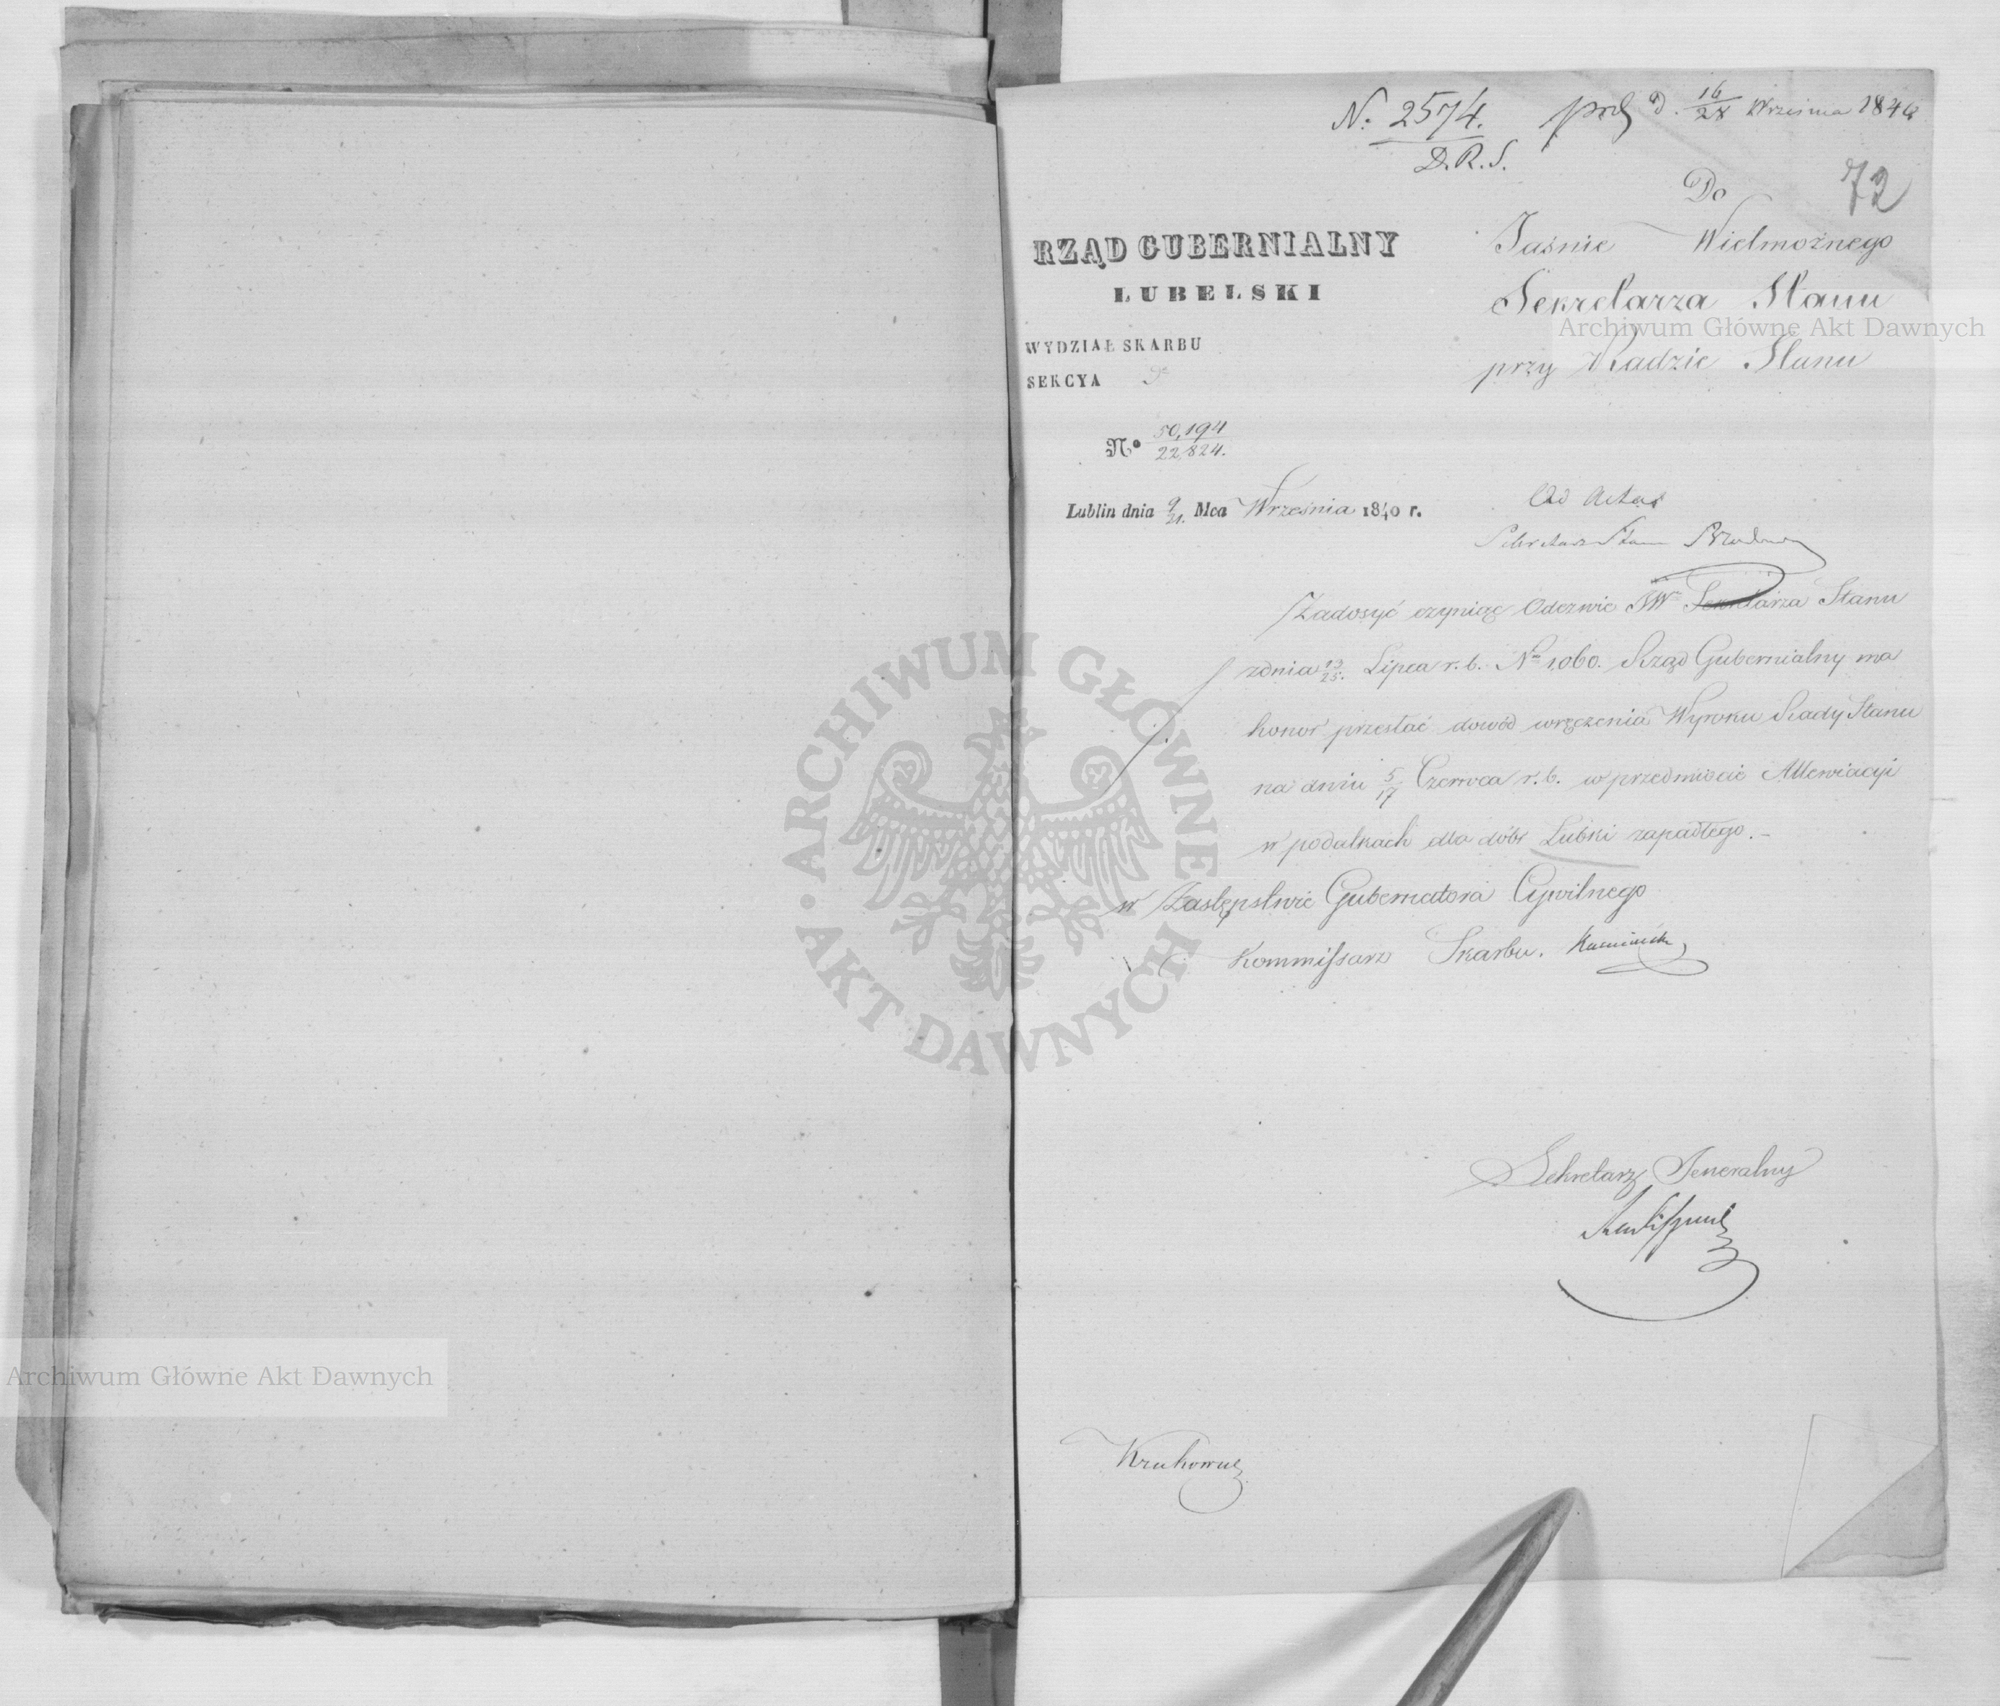 N: 2574.
D.R.S.
D. 16/28 Września 1840
72
Do
Jaśnie Wielmożnego
Sekretarza Stanu
przy Radzie Stanu
RZĄD GUBERNIALNY
LUBELSKI
WYDZIAŁ SKARBU
SEKCYA
No 50,194/22,824.
Lublin dnia 9/21. Mca Września 1840 r.
Ad Acta
Sekretarz Stanu
Zadosyć czyniąc Odezwie JW Sekretarza Stanu
zdnia 13/25. Lipca r. b. No 1060. Rząd Gubernialny ma
honor przesłać dowód wręczenia Wyroku Rady Stanu
na dniu 5/17 Czerwca r. b. w przedmiocie Allewiacyi
w podatkach dla dóbr Lubki zapadłego. –
w Zastępstwie Gubernatora Cywilnego
Kommissarz Skarbu.
Sekretarz Jeneralny
Archiwum Główne Akt Dawnych
ARCHIWUM GŁÓWNE
AKT DAWNYCH
Archiwum Główne Akt Dawnych